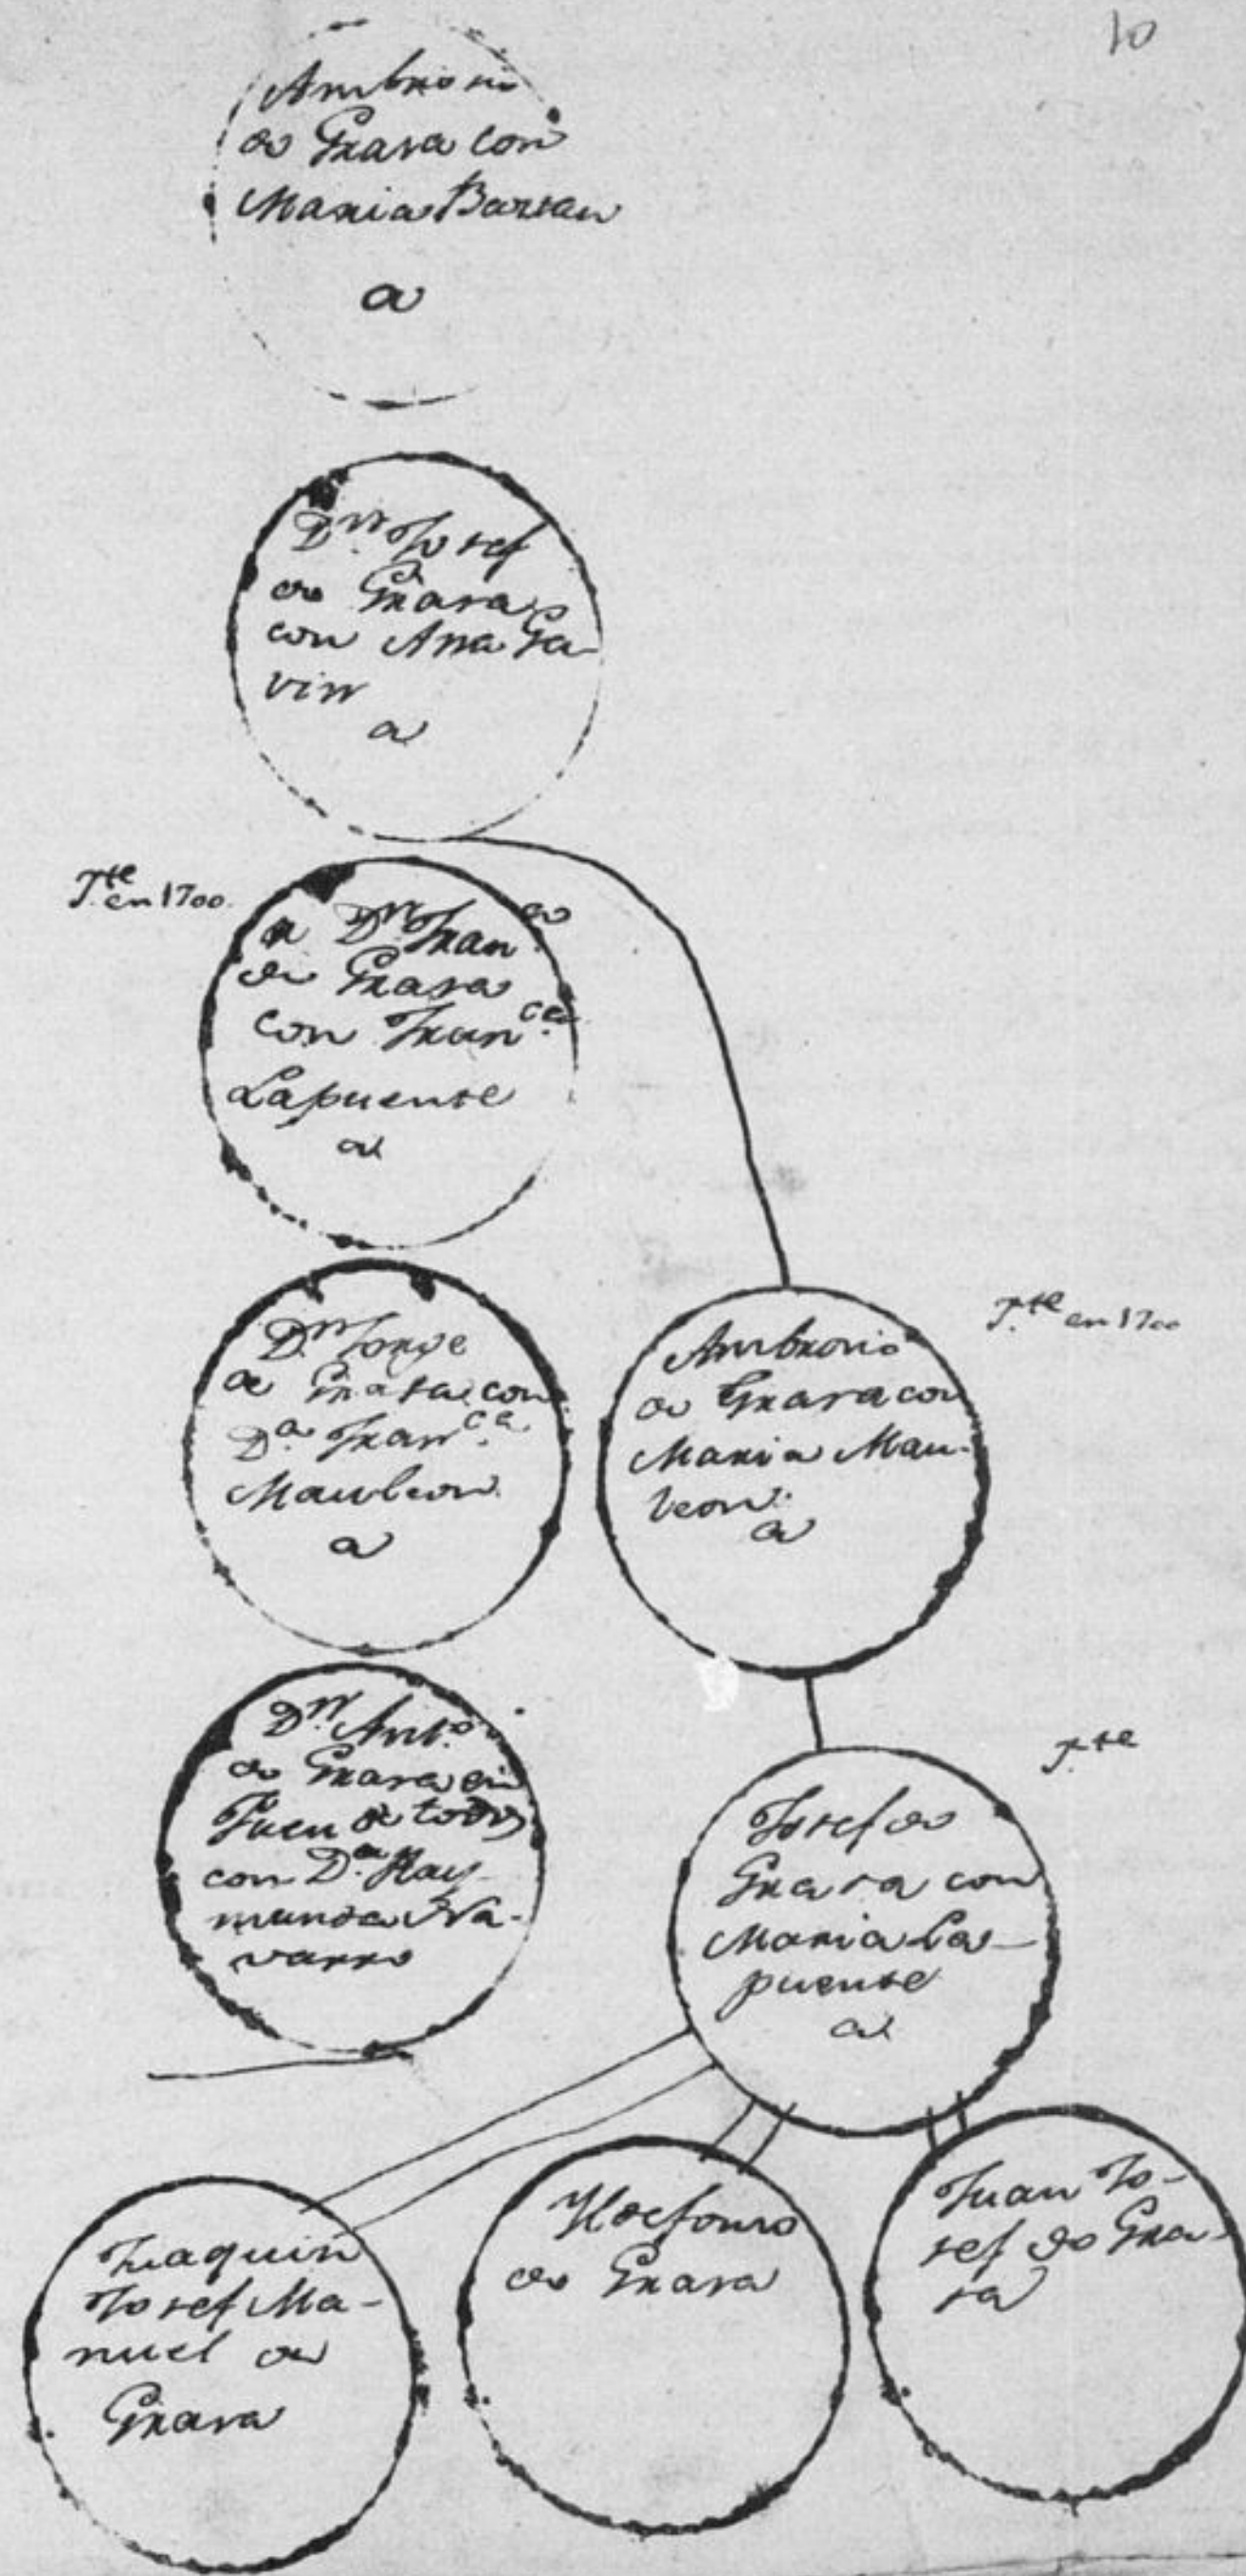 10
Ambrosio
de Grasa con
Maria Barsau
a
Dn. Josef
de Grasa
con Ana Ga-
vin
a
Jte. en 1700.
a Dn. Franco.
de Grasa
con Franca.
Lapuente
a
Dn. Jorge
de Grasa con
Da. Franca.
Mauleon
a
Ambrosio
de Grasa con
Maria Mau-
leon.
a
Jte. en 1700
Dn. Anto.
de Grasa en
Fuen de todos
con Da. Ray-
munda Na-
varro
Jte.
Josef de
Grasa con
Maria La-
puente
a
Juaquin
Josef Ma-
nuel de
Grasa
Ildefonso
de Grasa
Juan Jo-
sef de Gra-
sa